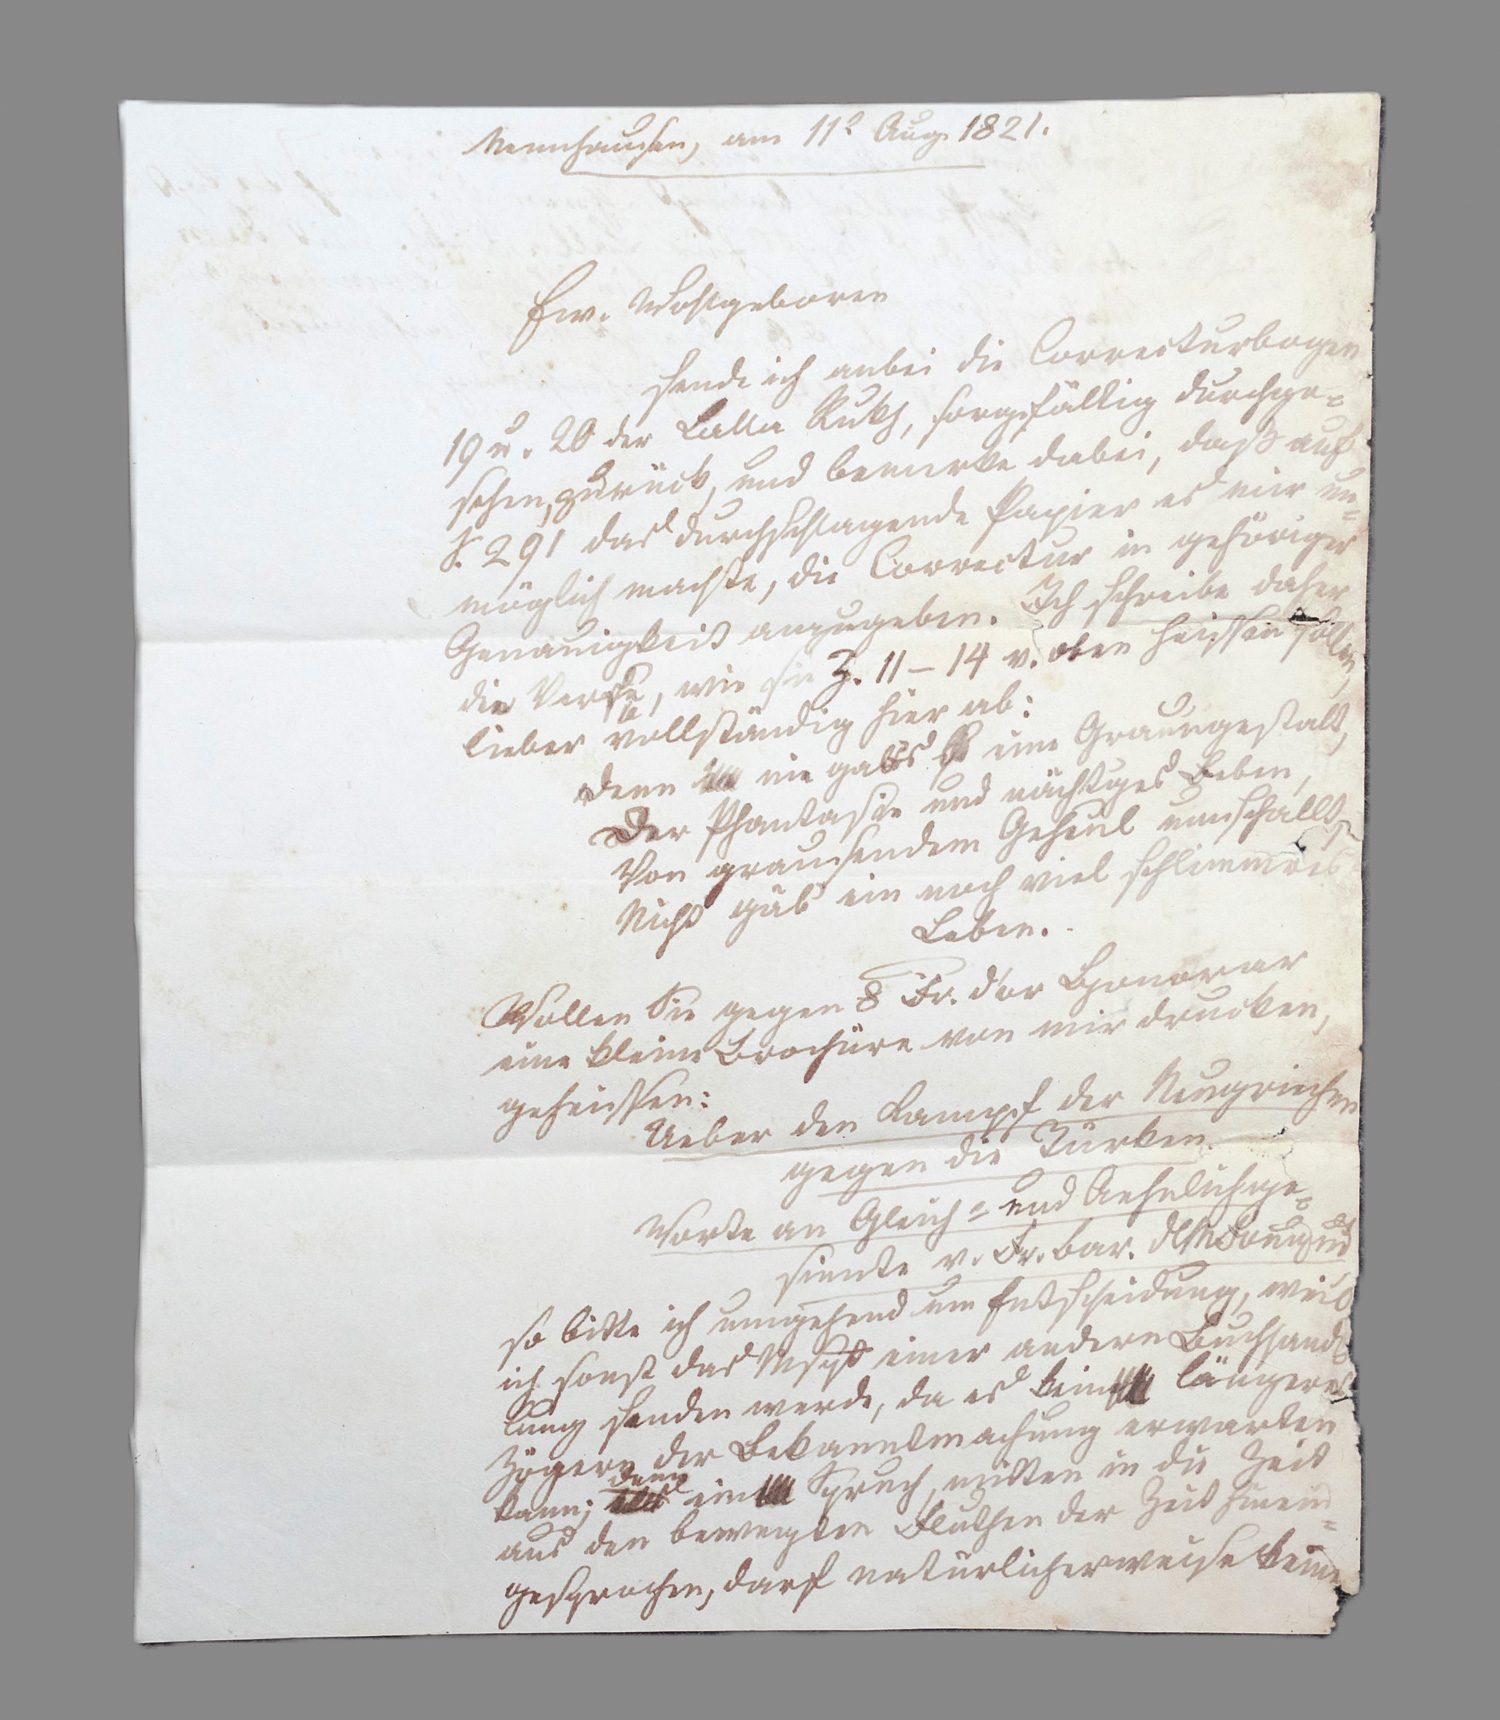 Nennhausen, am 11t Aug. 1821.
Ew. Wohlgeboren
sende ich anbei die Correcturbogen
19 u. 20 der Lalla Rukh, sorgfältig durchge-
sehen, zurück, und bemerke dabei, daß auf
S. 291 das durchschlagende Papier es mir un-
möglich machte, die Correctur in gehöriger
Genauigkeit anzugeben. Ich schreibe daher
die Verse, wie sie Z. 11 – 14 v. oben heissen sollen,
lieber vollständig hier ab:
Denn nie gab's eine Graungestalt,
Der Phantasie und nächtges Beben,
Von grausendem Geheul umschallt,
Nicht gäb' ein noch viel schlimmres
Leben.
Wollen Sie gegen 8 Fr. d'or Honorar
eine kleine Brochüre von mir drucken,
geheissen:
Ueber den Kampf der Neugriechen
gegen die Türken.
Worte an Gleich- und Aehnlichge-
sinnte v. Fr. Bar. d. l. M. Fouqué
so bitte ich umgehend um Entscheidung, weil
ich sonst das Mspt einer andern Buchhand-
lung senden werde, da es kein längeres
Zögern der Bekanntmachung erwarten
kann; denn ein Spruch, mitten in die Zeit
aus den bewegten Fluthen der Zeit hinein-
gesprochen, darf natürlicherweise keine